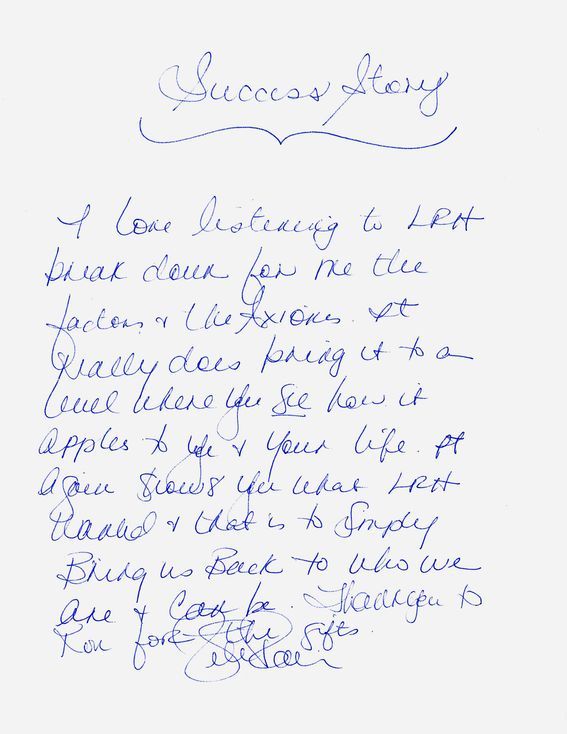 Success Story
I love listening to LRH
break down for me the
factors & the Axioms. It
really does bring it to a
level where you see how it
apples to you & your life. It
again shows you what LRH
wanted & that is to simply
Bring us Back to who we
are & can be. Thank you to
Ron for the gifts.